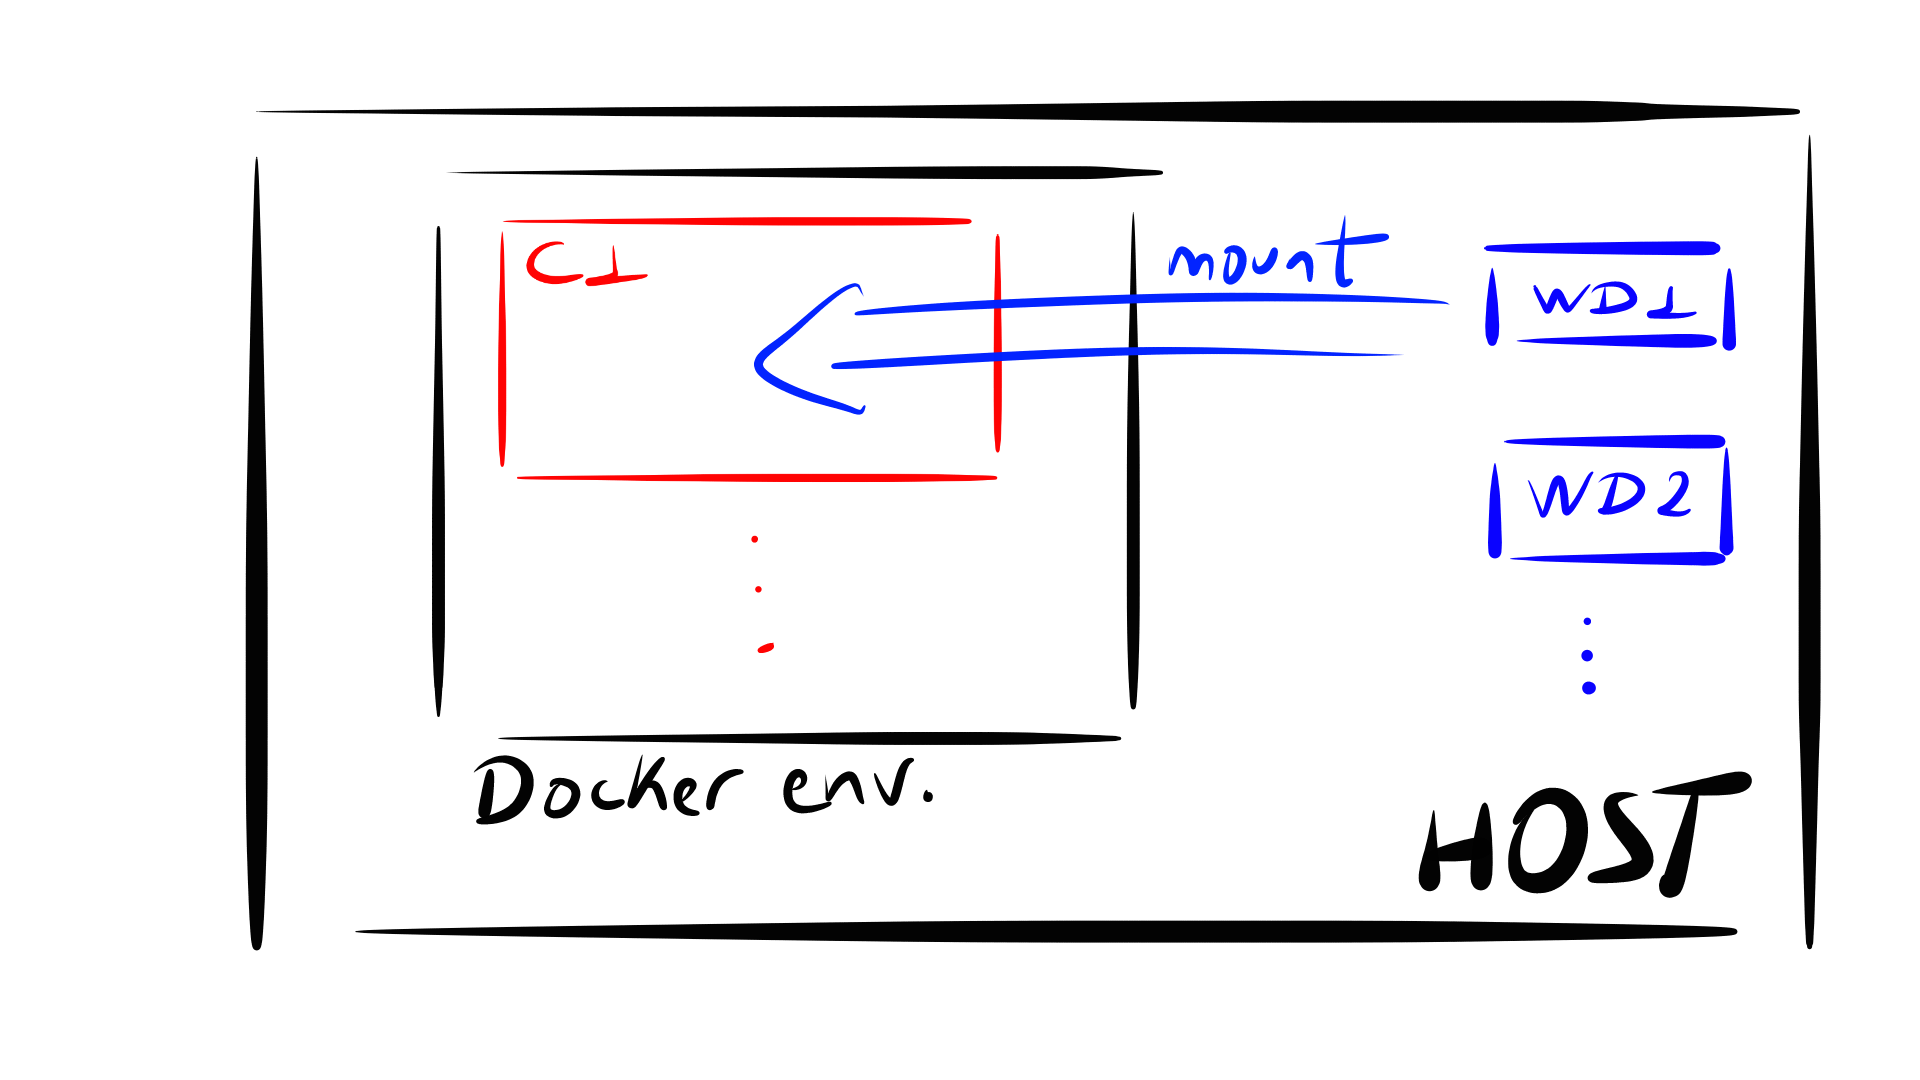 C1
mount
WD1
WD2
Docker env.
HOST